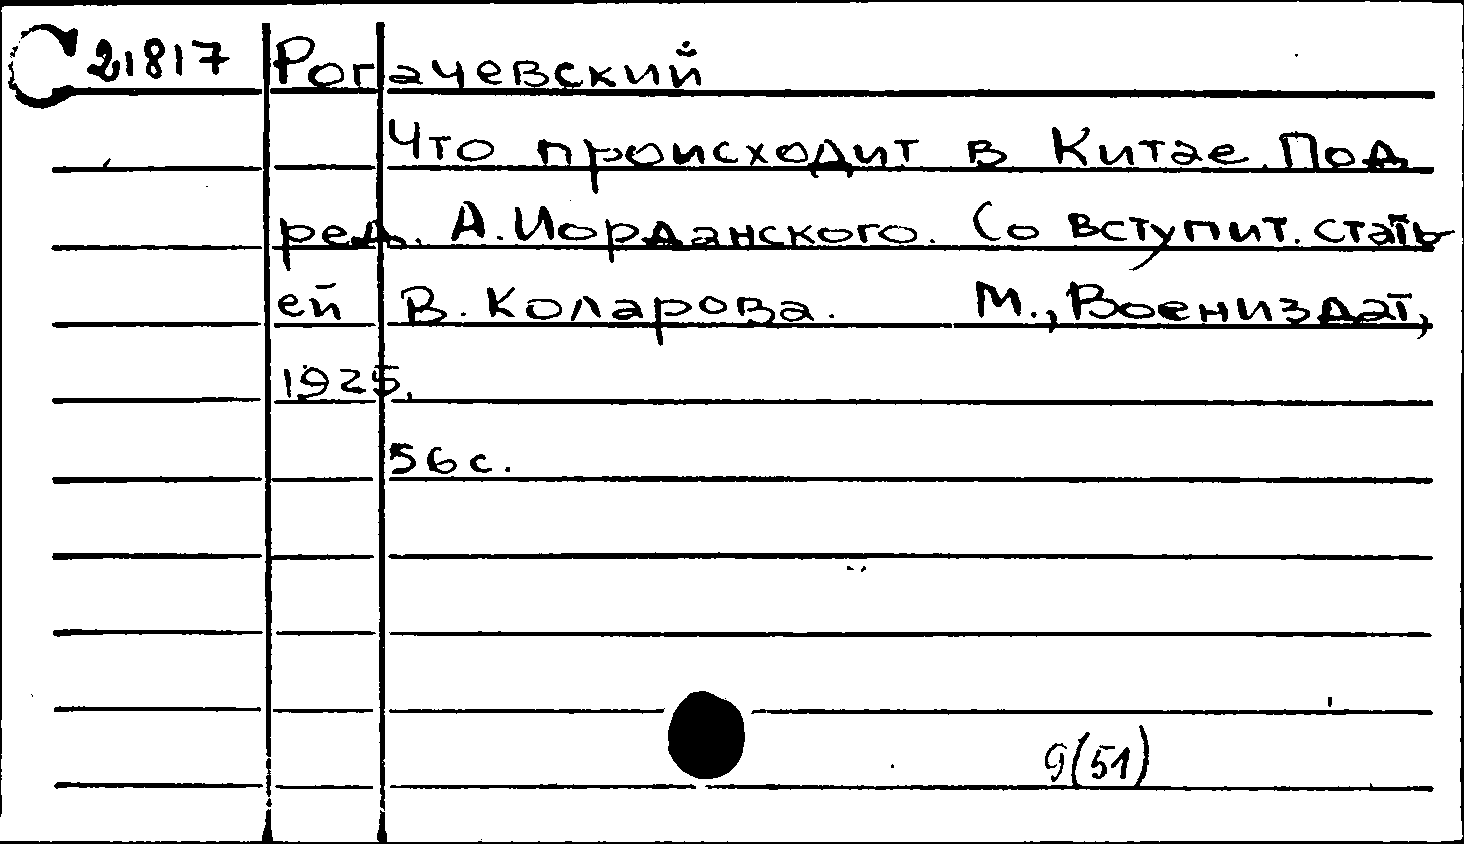 21817 Рогачевский
Что происходит в Китае. Под
ред. А. Иорданского. Со вступит. стать
ей В. Коларова. М., Воениздат,
1925.
56 с.
9(51)